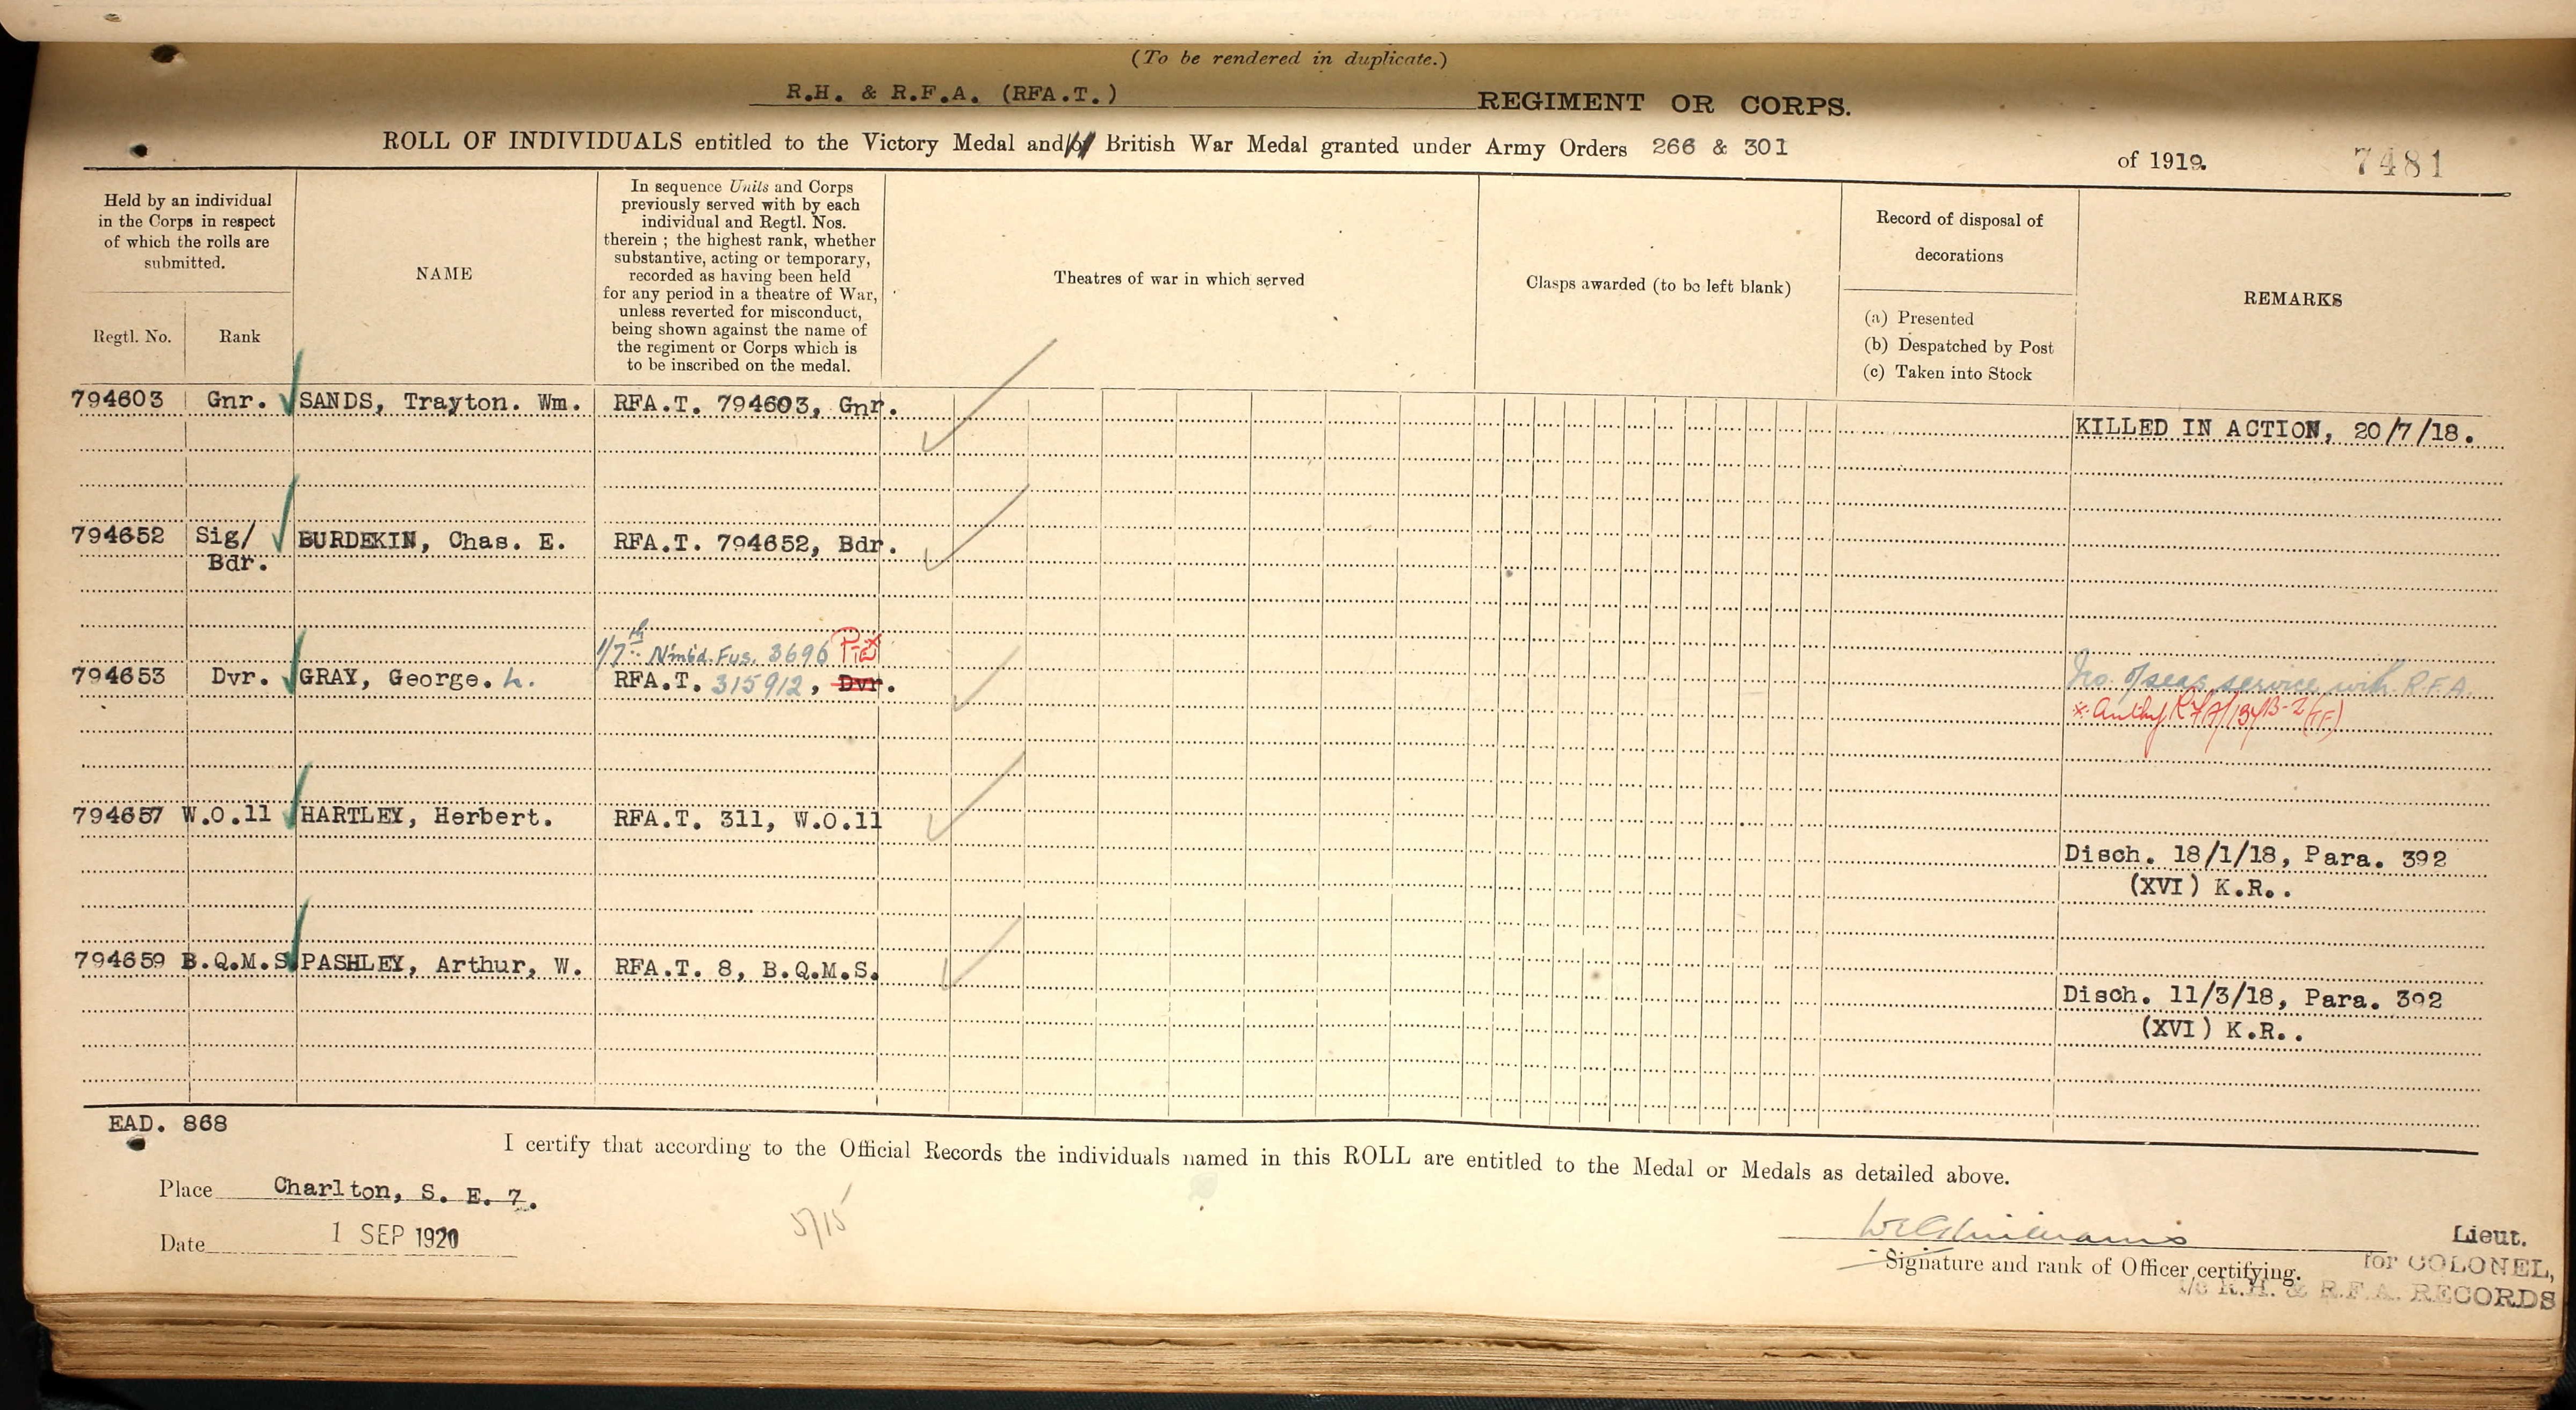 (To be rendered in duplicate.)
R.H. & R.F.A. (RFA.T.) REGIMENT OR CORPS.
ROLL OF INDIVIDUALS entitled to the Victory Medal and/or British War Medal granted under Army Orders 266 & 301 of 1919. 7481
Held by an individual
in the Corps in respect
of which the rolls are
submitted.
Regtl. No. Rank
NAME
In sequence Units and Corps
previously served with by each
individual and Regtl. Nos.
therein ; the highest rank, whether
substantive, acting or temporary,
recorded as having been held
for any period in a theatre of War,
unless reverted for misconduct,
being shown against the name of
the regiment or Corps which is
to be inscribed on the medal.
Theatres of war in which served
Clasps awarded (to be left blank)
Record of disposal of
decorations
(a) Presented
(b) Despatched by Post
(c) Taken into Stock
REMARKS
794603 Gnr. SANDS, Trayton. Wm. RFA.T. 794603, Gnr.
KILLED IN ACTION, 20/7/18.
794652 Sig/ BURDEKIN, Chas. E. RFA.T. 794652, Bdr.
Bdr.
1/7th N'mbd. Fus. 3696 Pte
794653 Dvr. GRAY, George. h. RFA.T. 315912, Dvr. No O/seas service with R.F.A.
794657 W.O.11 HARTLEY, Herbert. RFA.T. 311, W.O.11
Disch. 18/1/18, Para. 392
(XVI) K.R..
794659 B.Q.M.S PASHLEY, Arthur, W. RFA.T. 8, B.Q.M.S.
Disch. 11/3/18, Para. 392
(XVI) K.R..
EAD. 868
I certify that according to the Official Records the individuals named in this ROLL are entitled to the Medal or Medals as detailed above.
Place Charlton, S. E. 7.
5/15
Date 1 SEP 1920
Lieut.
Signature and rank of Officer certifying. for COLONEL,
i/c R.H. & R.F.A. RECORDS